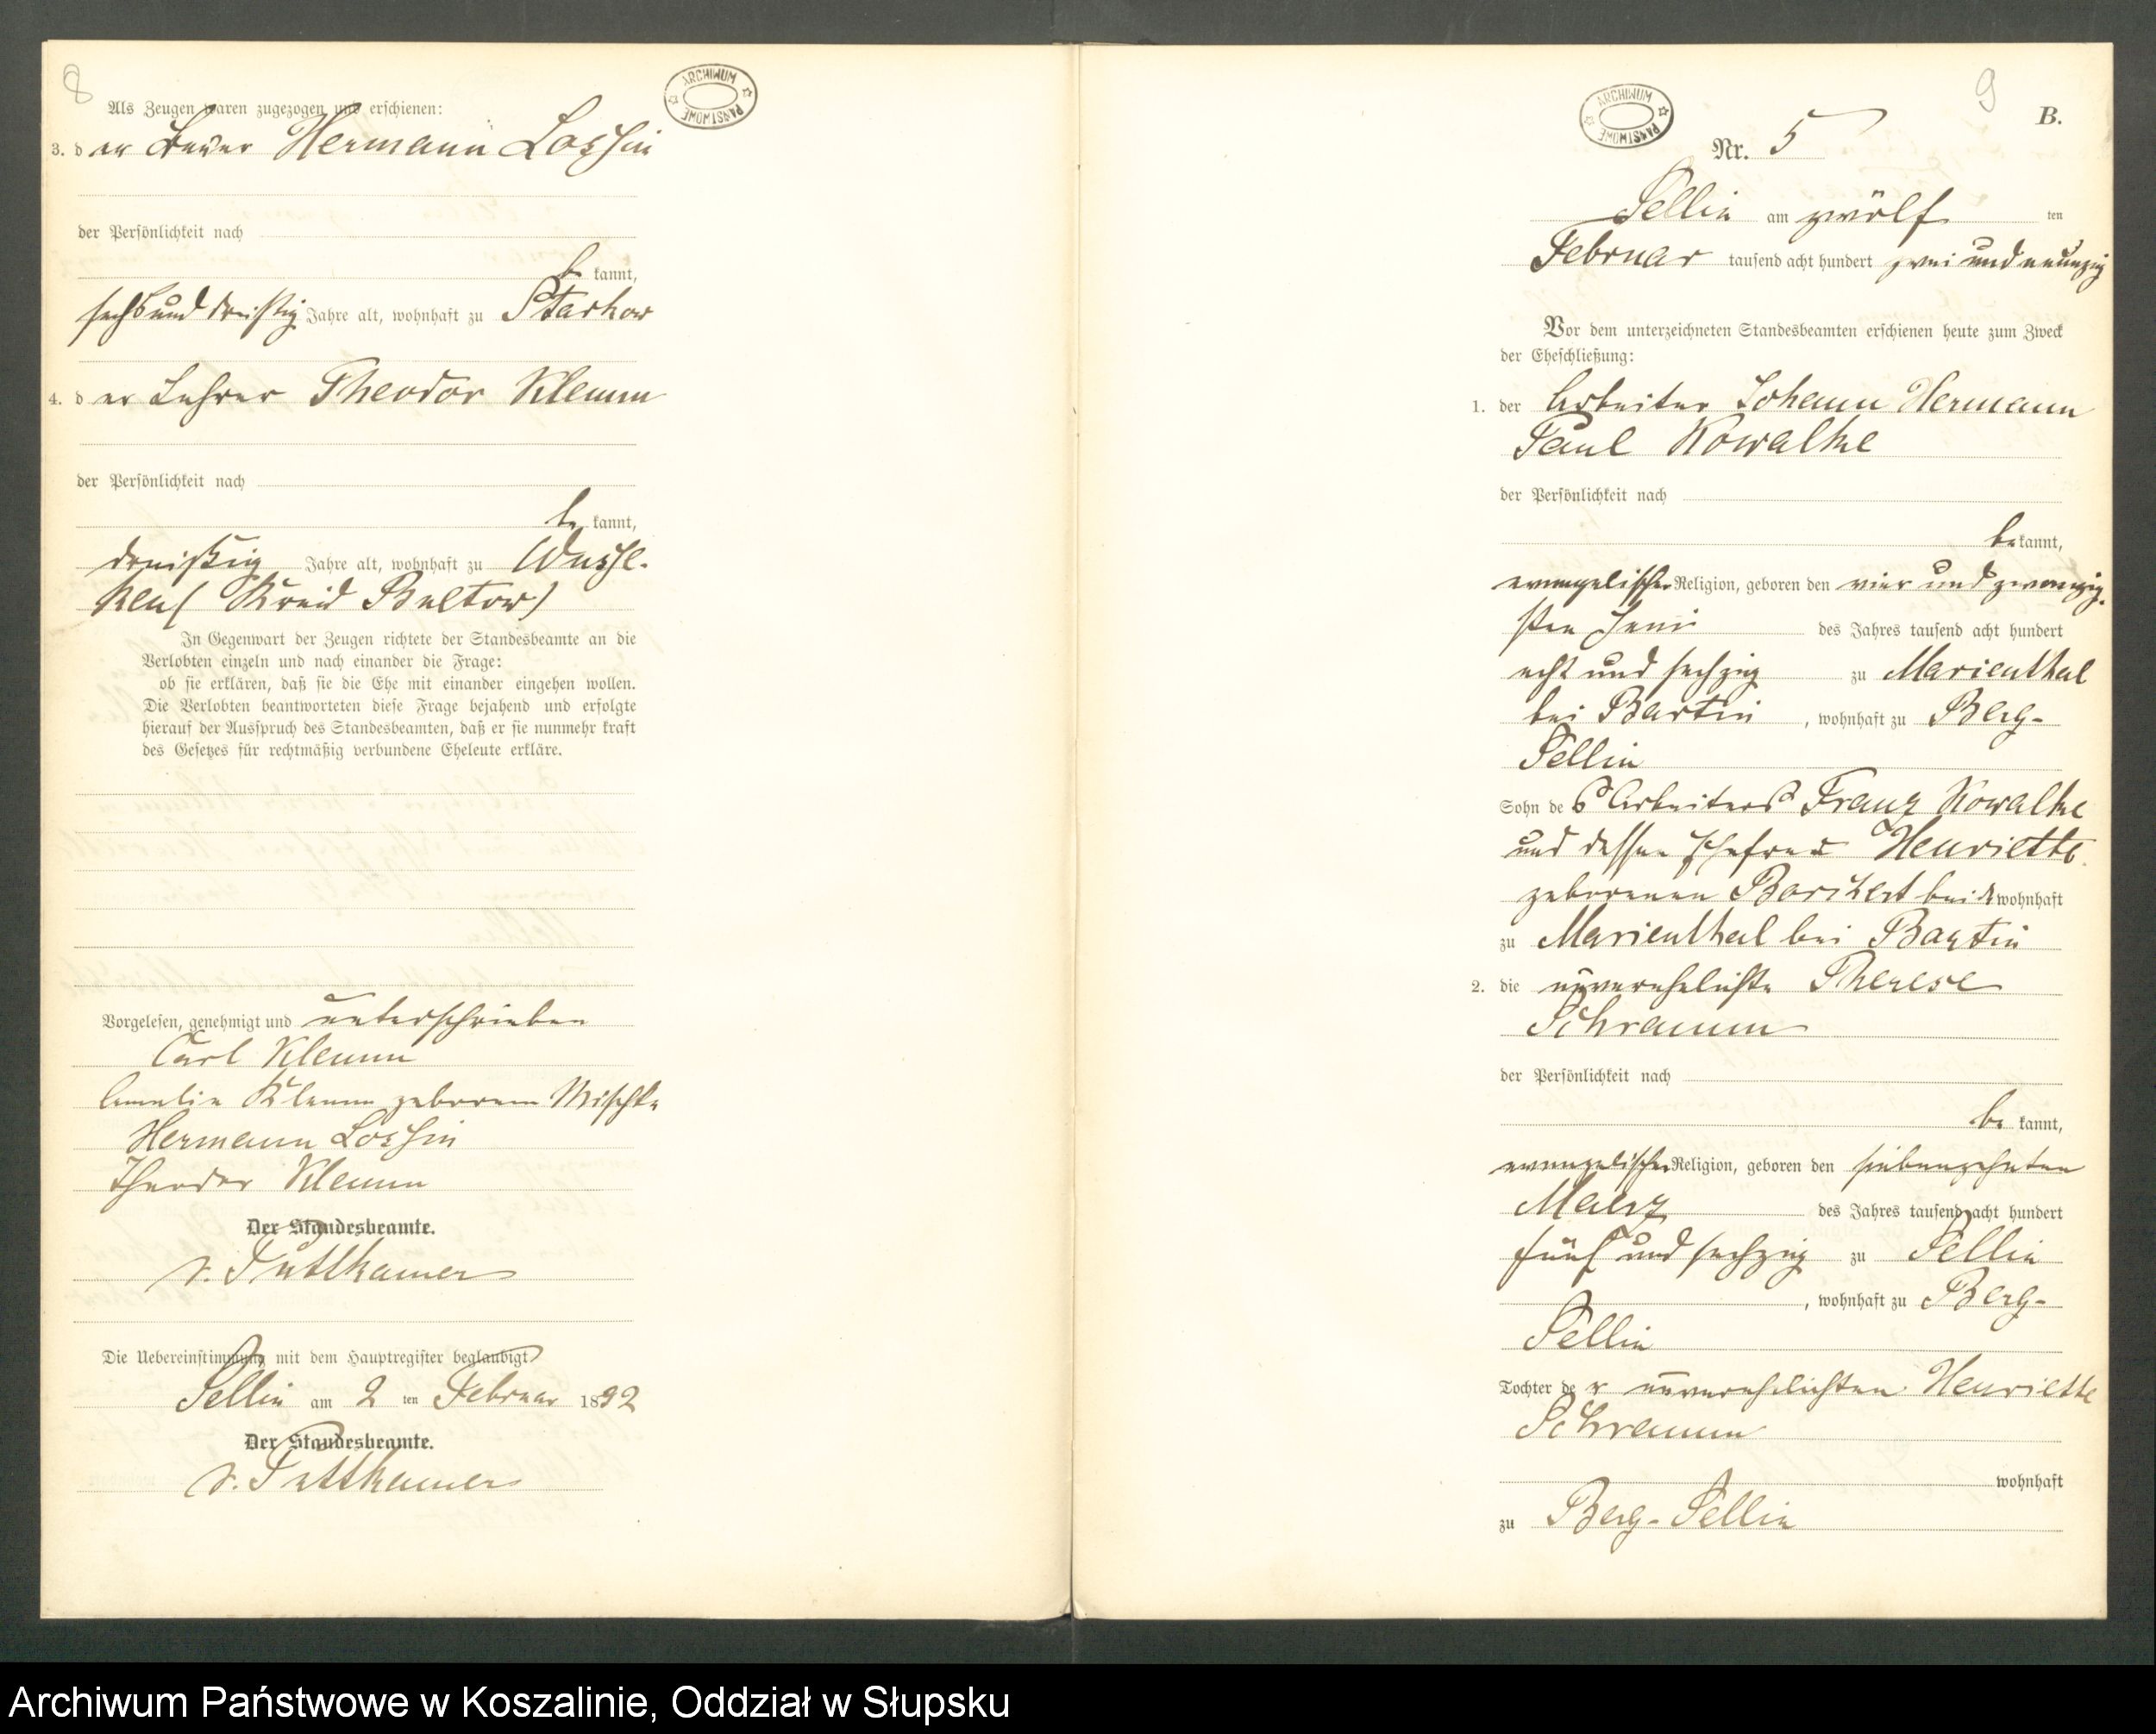 8
ARCHIWUM PAŃSTWOWE
Als Zeugen waren zugezogen und erschienen:
3. der Bauer Hermann Lossin
der Persönlichkeit nach
be kannt,
sechsunddreißig Jahre alt, wohnhaft zu Starkow
4. der Lehrer Theodor Klemm
der Persönlichkeit nach
be kannt,
dreißig Jahre alt, wohnhaft zu Wusse-
ken (Kreis Buetow)
In Gegenwart der Zeugen richtete der Standesbeamte an die
Verlobten einzeln und nach einander die Frage:
ob sie erklären, daß sie die Ehe mit einander eingehen wollen.
Die Verlobten beantworteten diese Frage bejahend und erfolgte
hierauf der Ausspruch des Standesbeamten, daß er sie nunmehr kraft
des Gesetzes für rechtmäßig verbundene Eheleute erkläre.
Vorgelesen, genehmigt und unterschrieben
Carl Klemm
Amalie Klemm geborene Mischke
Hermann Lossin
Theodor Klemm
Der Standesbeamte.
v. Puttkamer
Die Uebereinstimmung mit dem Hauptregister beglaubigt
Sellin am 2 ten Februar 1892
Der Standesbeamte.
v. Puttkamer
9
B.
ARCHIWUM PAŃSTWOWE
Nr. 5
Sellin am zwölf ten
Februar tausend acht hundert zwei und neunzig
Vor dem unterzeichneten Standesbeamten erschienen heute zum Zweck
der Eheschließung:
1. der Arbeiter Johann Hermann
Paul Kowalke
der Persönlichkeit nach
be kannt,
evangelischer Religion, geboren den vier und zwanzig-
sten Juni des Jahres tausend acht hundert
acht und sechzig zu Marienthal
bei Bartin, wohnhaft zu Berg-
Sellin
Sohn des Arbeiters Franz Kowalke
und dessen Ehefrau Henriette
geborenen Borchert beide wohnhaft
zu Marienthal bei Bartin
2. die unverehelichte Therese
Schramm
der Persönlichkeit nach
be kannt,
evangelischer Religion, geboren den siebenzehnten
Maerz des Jahres tausend acht hundert
fünf und sechzig zu Sellin
, wohnhaft zu Berg-
Sellin
Tochter der unverehelichten Henriette
Schramm
wohnhaft
zu Berg-Sellin
Archiwum Państwowe w Koszalinie, Oddział w Słupsku